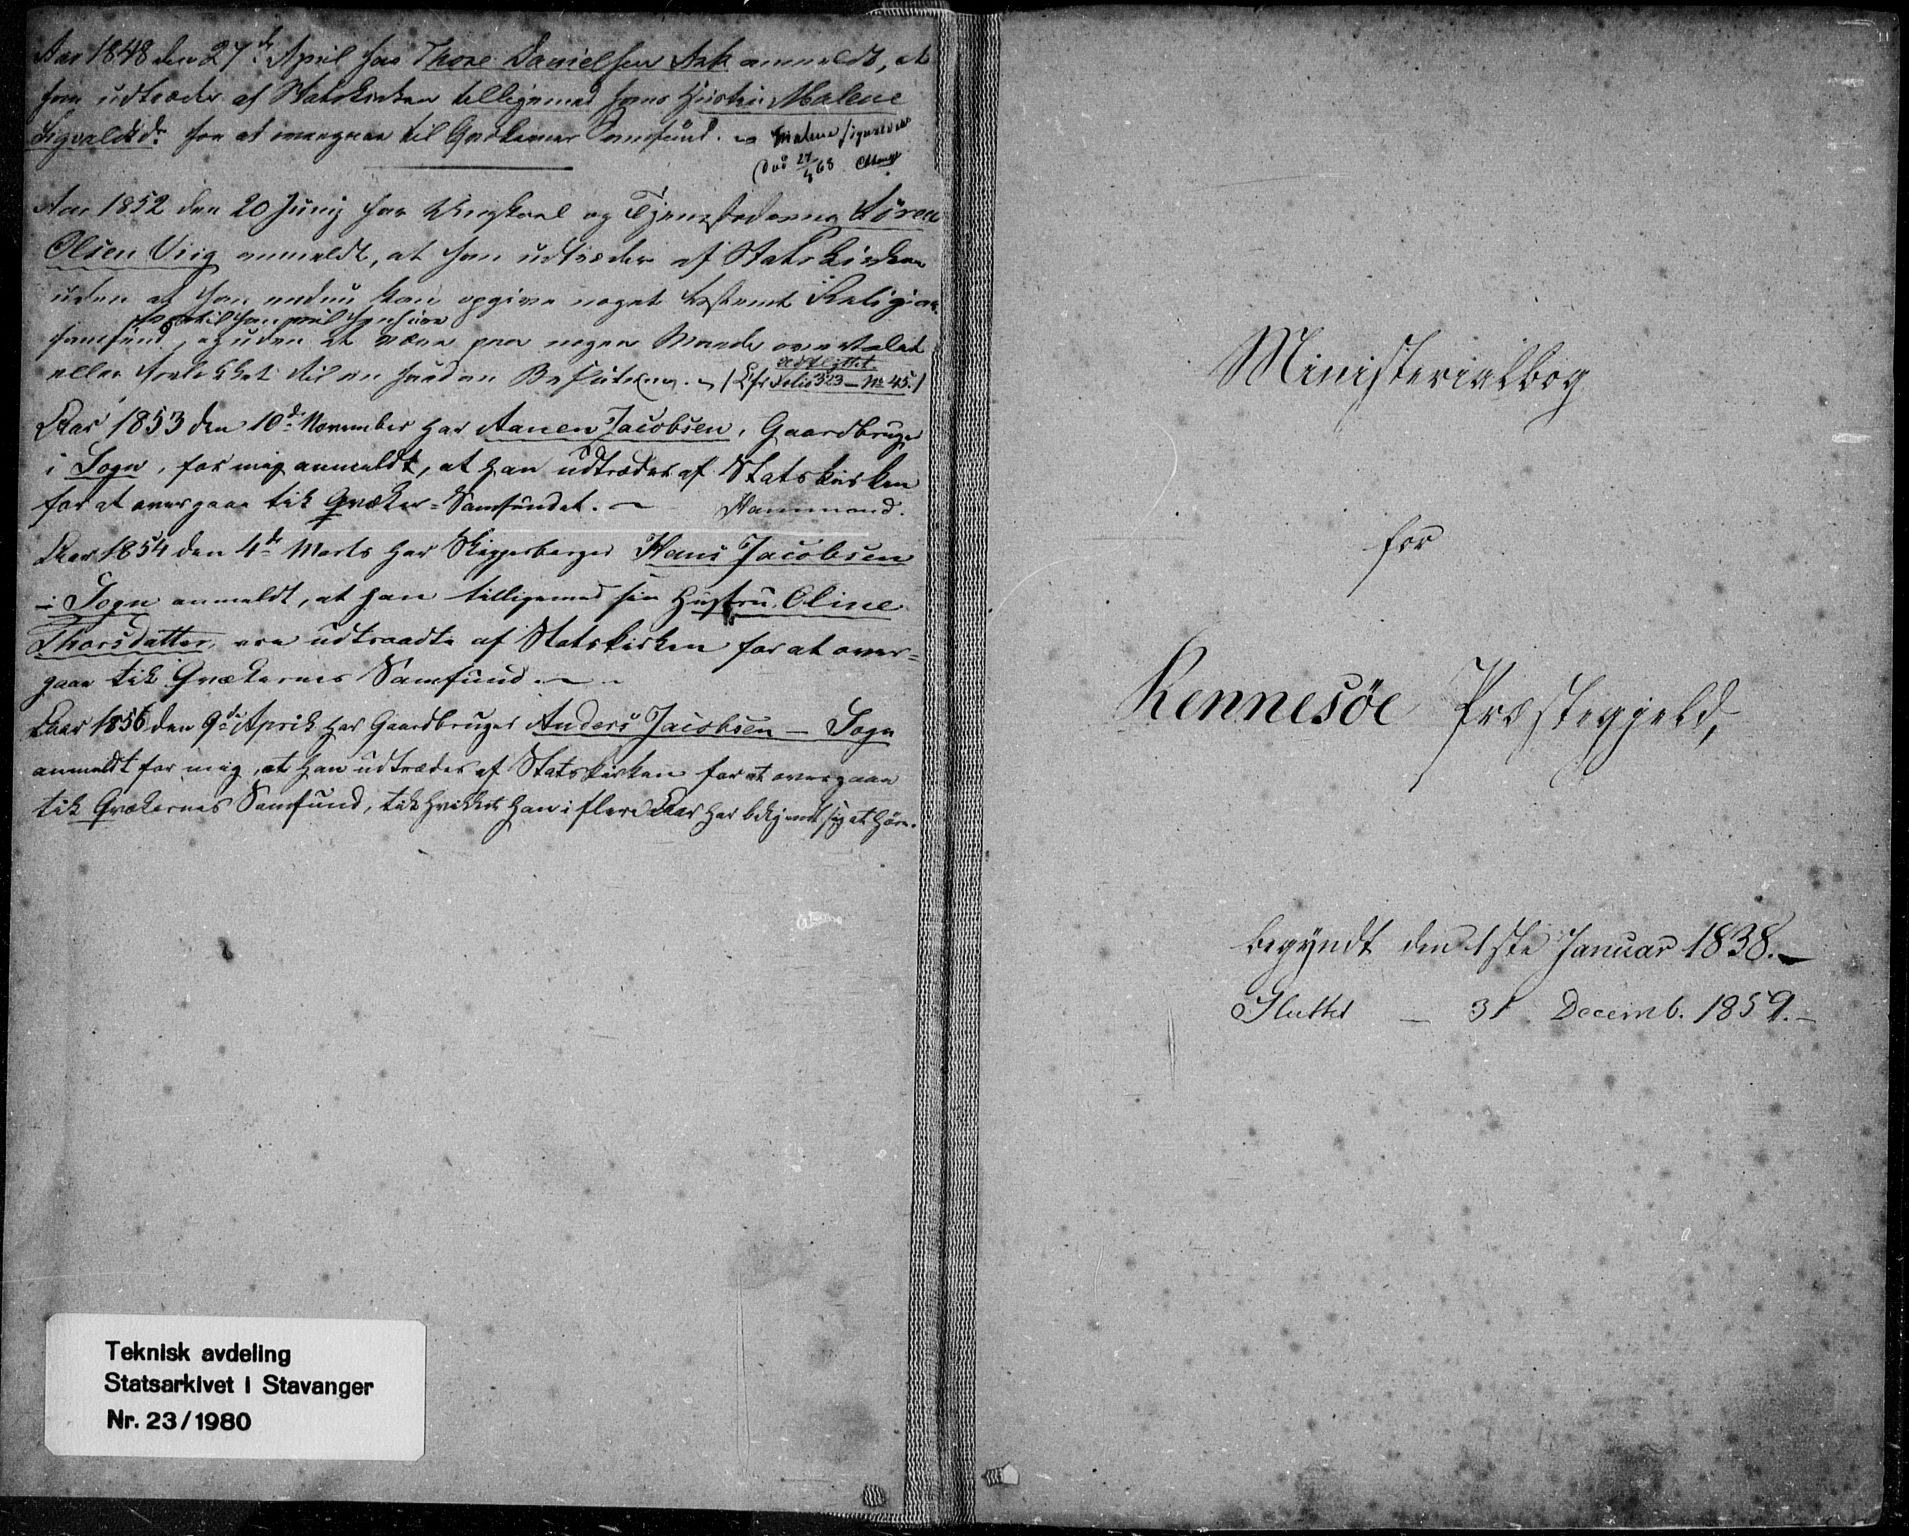 Aar 1848 den 27de April har Thore Danielsen Ask anmeldt, at
han udtræder af Statskirken tilligemed hans Hustru Malene
Sigvaldsdr for at overgaae til Qvækernes Samfund. Malene Sigvaldsd
død 27/ 68
Aar 1852 den 20 Junij har Ungkarl og Søren
Olsen Viig anmeldt, at han udtræder af Statskirken
uden at han endnu kan opgive noget bestemt Religions
hvortil han vil henhøre
samfund, og uden at være paa nogen Maade overtalet
udflyttet.
eller forlokket til en saadan Beslutning. (Cfr folio 323 – No 45.)
Aar 1853 den 10de November har Aanen Jacobsen, Gaardbruger
i Sogn, for mig anmeldt, at han udtræder af Statskirken
for at overgaae til Qvæker-Samfundet. Hammond.
Aar 1854 den 4de Marts har Hans Jacobsen
i Sogn anmeldt, at han tilligemed sin Hustru, Oline
Thorsdatter, ere udtraadte af Statskirken for at over=
gaae til Qvækernes Samfund.
Aar 1856 den 9de April har Gaardbruger Anders Jacobsen – Sogn
anmeldt for mig, at han udtræder af Statskirken for at overgaae
til Qvækernes Samfund, til hvilket han i flere Aar har bekjendt sig at høre.
Teknisk avdeling
Statsarkivet i Stavanger
Nr. 23/1980
Ministerialbog
for
Rennesøe Præstegjeld,
begyndt den 1ste Januar 1838.
Sluttet — 31 Decemb. 1859.